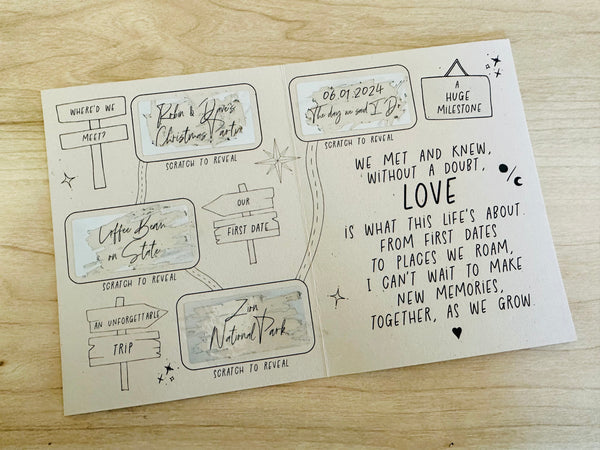 WHERE'D WE
MEET?
Robin & Dave's
Christmas Party
SCRATCH TO REVEAL
Coffee Bean
on State
SCRATCH TO REVEAL
OUR
FIRST DATE
AN UNFORGETTABLE
TRIP
Zion
National Park
SCRATCH TO REVEAL
06.01.2024
The day we said I Do
SCRATCH TO REVEAL
A
HUGE
MILESTONE
WE MET AND KNEW,
WITHOUT A DOUBT,
LOVE
IS WHAT THIS LIFE'S ABOUT.
FROM FIRST DATES
TO PLACES WE ROAM,
I CAN'T WAIT TO MAKE
NEW MEMORIES,
TOGETHER, AS WE GROW.